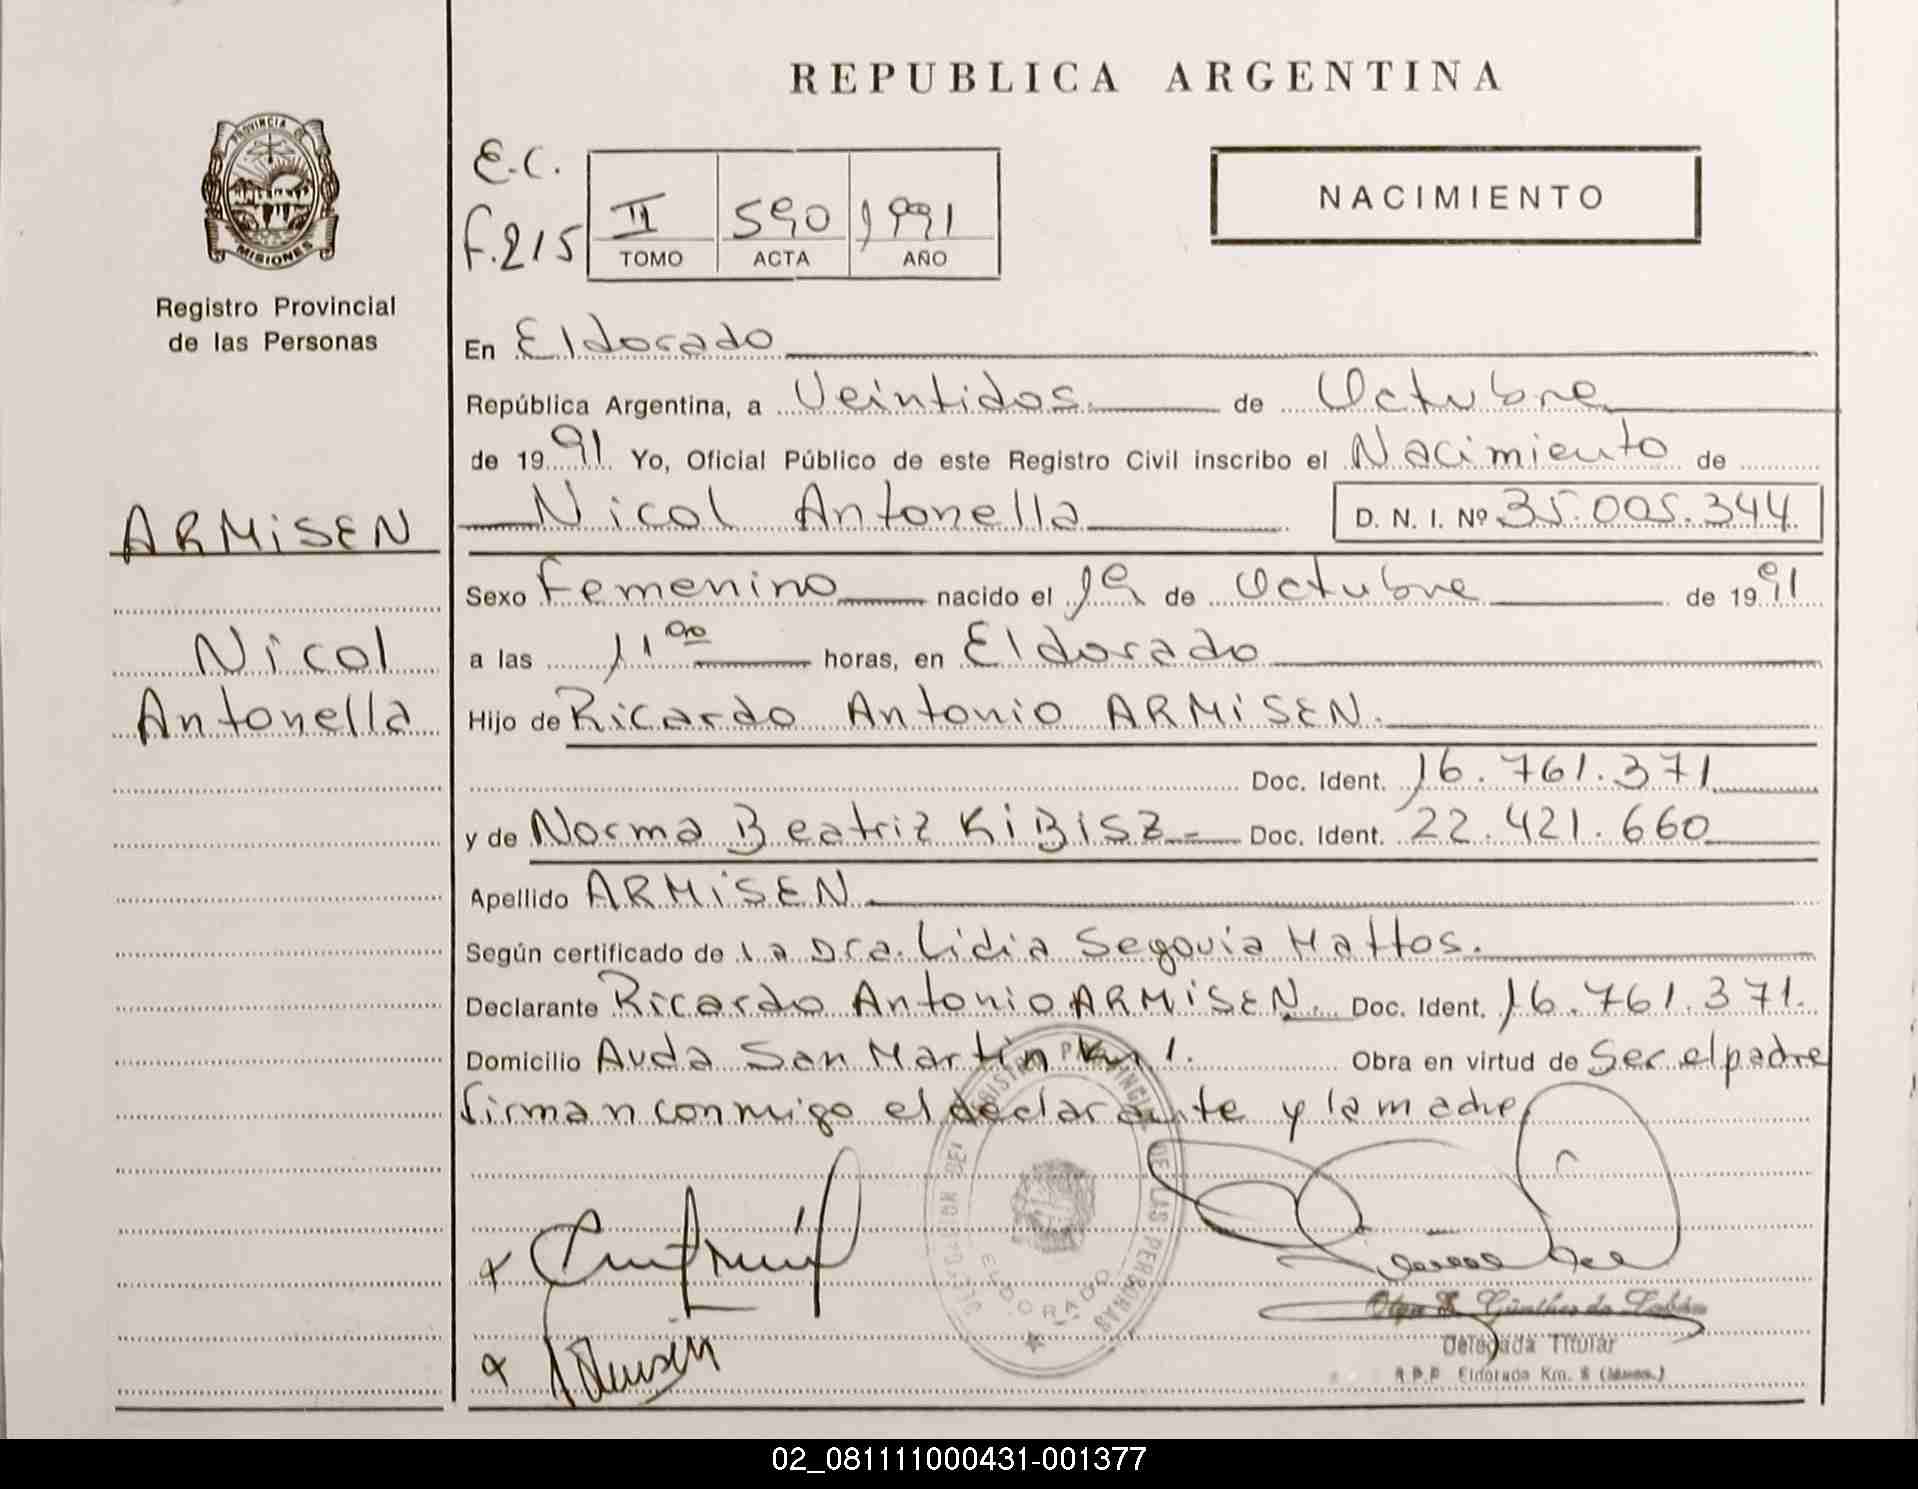 REPUBLICA ARGENTINA
PROVINCIA DE
MISIONES
Registro Provincial
de las Personas
E.C.
F.215
II 590 1991
TOMO ACTA AÑO
NACIMIENTO
En Eldorado
República Argentina, a Veintidos de Octubre
de 1991 Yo, Oficial Público de este Registro Civil inscribo el Nacimiento de
Nicol Antonella D. N. I. Nº 35.005.344
ARMiSEN
Nicol
Antonella
Sexo Femenino nacido el 19 de Octubre de 1991
a las 11 00 horas, en Eldorado
Hijo de Ricardo Antonio ARMiSEN.
Doc. Ident. 16.761.371
y de Norma Beatriz KiBISZ Doc. Ident. 22.421.660
Apellido ARMiSEN
Según certificado de la Dra. Lidia Segovia Mattos.
Declarante Ricardo Antonio ARMiSEN. Doc. Ident. 16.761.371.
Domicilio Avda San Martin Km 1. Obra en virtud de Ser el padre
firman conmigo el declarante y la madre
DELEGACION DEL REGISTRO PROVINCIAL DE LAS PERSONAS
ELDORADO
Delegada Titular
R.P.P. Eldorado Km. 8
02_081111000431-001377